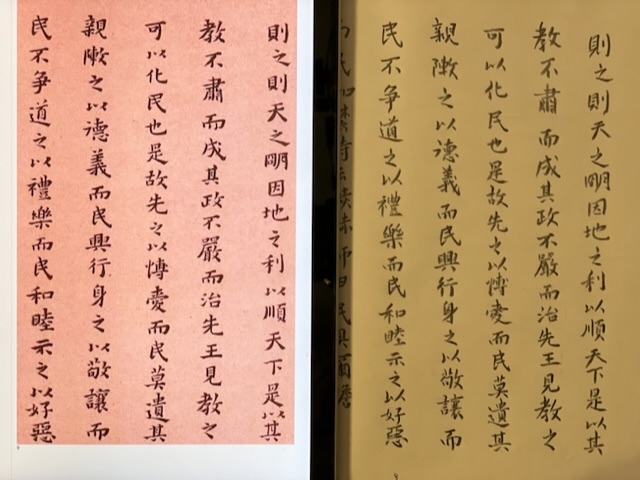 則之則天之眀因地之利以順天下是以其
教不肅而成其政不嚴而治先王見教之
可以化民也是故先之以愽愛而民莫遺其
親敶之以德義而民興行身之以敬讓而
民不争道之以禮樂而民和睦示之以好惡
則之則天之眀因地之利以順天下是以其
教不肅而成其政不嚴而治先王見教之
可以化民也是故先之以愽愛而民莫遺其
親敶之以德義而民興行身之以敬讓而
民不争道之以禮樂而民和睦示之以好惡